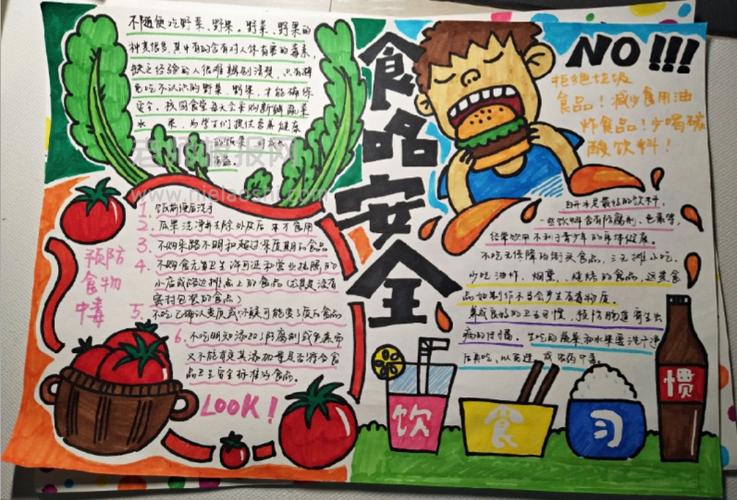 不随便吃野菜、野果、野菜、野果的
种类很多,其中有的含有对人体有害的毒素,
缺乏经验的人很难辨别清楚,只有避
免吃不认识的野菜、野果,才能确保
安全,我国食堂每天会采购新鲜蔬菜
水果,为学生们提供营养健康
食咯安全
NO!!!
拒绝垃圾
食品!减少食用油
炸食品!少喝碳
酸饮料!
预防
食物
中毒
1. 饭前便后洗手
2. 瓜果洗净并去除外皮后才食用
3. 不购来路不明和超过保质期的食品
4. 不购食无卫生许可证和营业执照的
小店或路边摊点上的食品(尤其是没有
密封包装的食品)
5. 不吃已确认变质或怀疑可能变了质的食品
6. 不吃明知添加了防腐剂或色素而
又不能肯定其添加量是否符合食
品卫生安全标准的食品。
LOOK!
白开水是最好的饮料,
一些饮料含有防腐剂、色素等,
经常饮用不利于青少年的身体健康。
不吃无保障的街头食品、三无摊小吃.
少吃油炸、烟熏、烧烤的食品,这类食
品如制作不当会产生有毒物质。
养成良好的卫生习惯,预防肠道寄生虫
病的传播。生吃的蔬菜和水果要洗干净
后再吃,以免造成
饮
食
习
惯